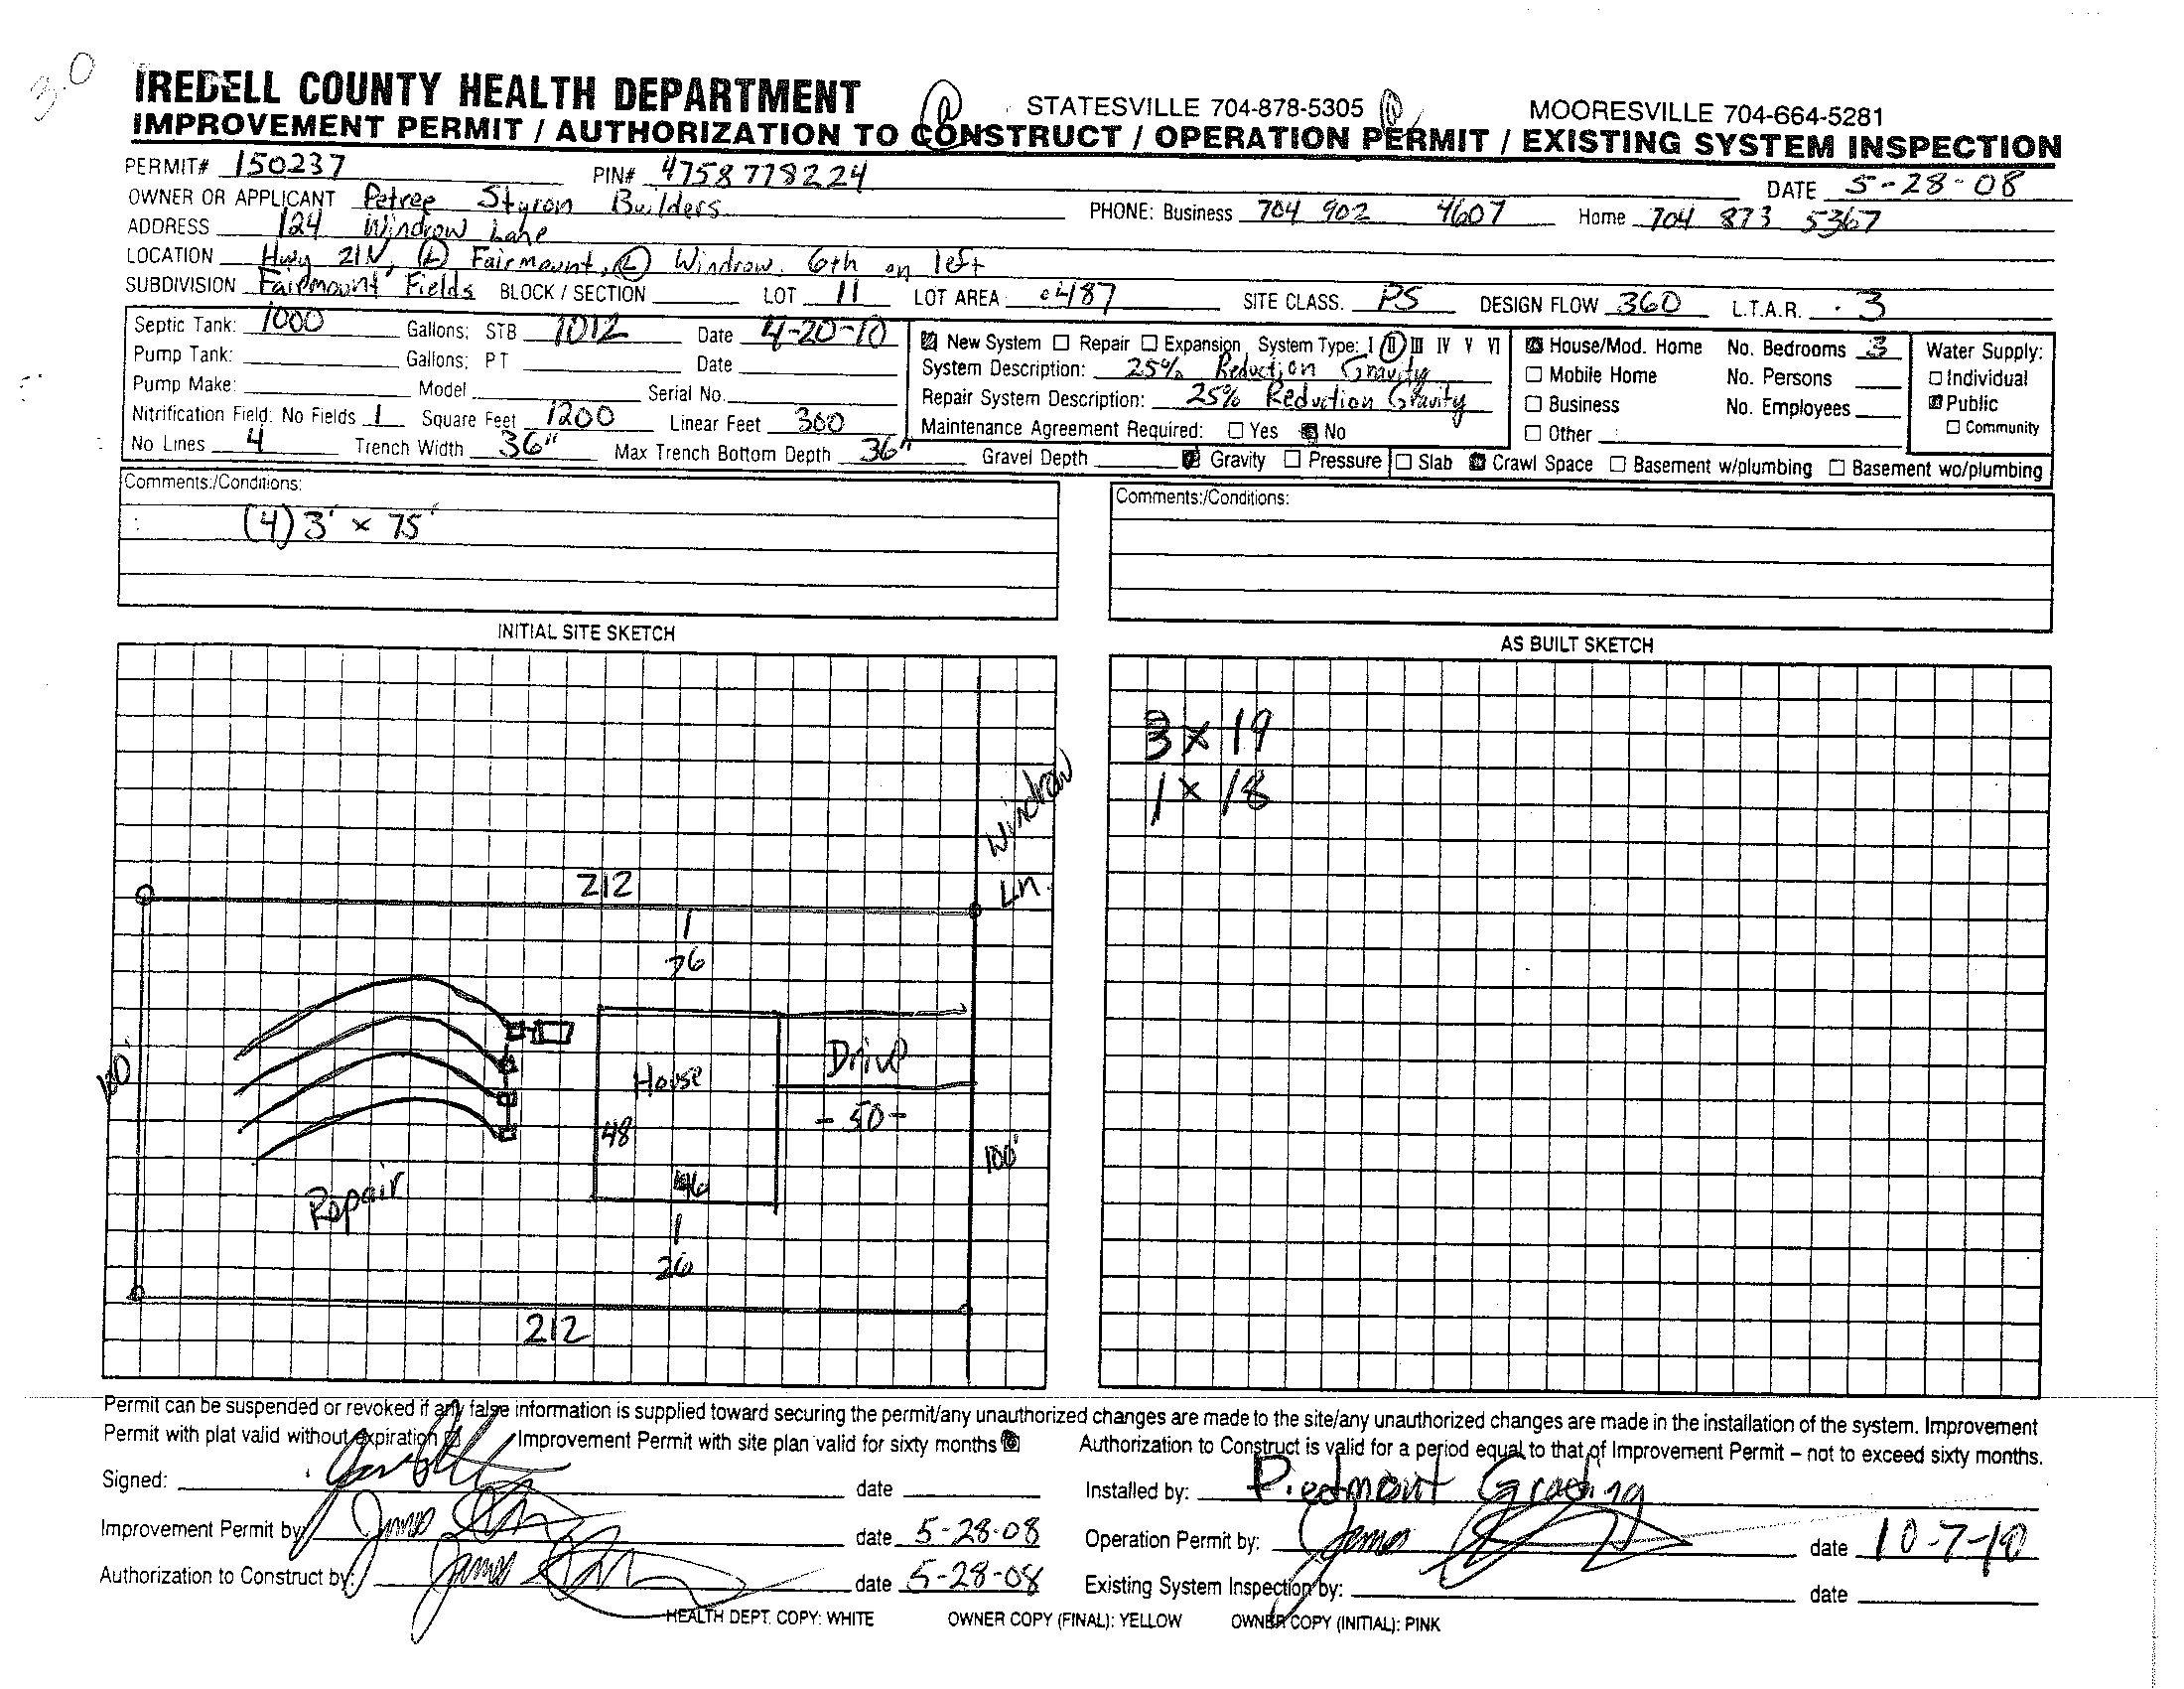 3.0
IREDELL COUNTY HEALTH DEPARTMENT STATESVILLE 704-878-5305 MOORESVILLE 704-664-5281
IMPROVEMENT PERMIT / AUTHORIZATION TO CONSTRUCT / OPERATION PERMIT / EXISTING SYSTEM INSPECTION
PERMIT# 150237 PIN# 4758778224 DATE 5-28-08
OWNER OR APPLICANT Petree Styron Builders PHONE: Business 704 902 4607 Home 704 873 5367
ADDRESS 124 Windrow Lane
LOCATION Hwy 21N, (L) Fairmount, (L) Windrow. 6th on left
SUBDIVISION Fairmount Fields BLOCK / SECTION LOT 11 LOT AREA .487 SITE CLASS. PS DESIGN FLOW 360 L.T.A.R. .3
Septic Tank: 1000 Gallons: STB 1012 Date 4-20-10
Pump Tank: Gallons: PT Date
Pump Make: Model Serial No.
Nitrification Field: No Fields 1 Square Feet 1200 Linear Feet 300
No Lines 4 Trench Width 36" Max Trench Bottom Depth 36" Gravel Depth Gravity Pressure
New System Repair Expansion System Type: I II III IV V VI
System Description: 25% Reduction Gravity
Repair System Description: 25% Reduction Gravity
Maintenance Agreement Required: Yes No
House/Mod. Home No. Bedrooms 3
Mobile Home No. Persons
Business No. Employees
Other
Water Supply:
Individual
Public
Community
Slab Crawl Space Basement w/plumbing Basement wo/plumbing
Comments:/Conditions:
(4) 3' x 75'
Comments:/Conditions:
INITIAL SITE SKETCH
Windrow
Ln.
212
26
House
Drive
48
-50-
100'
100'
46
Repair
26
212
AS BUILT SKETCH
3 x 19
1 x 18
Permit can be suspended or revoked if any false information is supplied toward securing the permit/any unauthorized changes are made to the site/any unauthorized changes are made in the installation of the system. Improvement
Permit with plat valid without expiration Improvement Permit with site plan valid for sixty months Authorization to Construct is valid for a period equal to that of Improvement Permit – not to exceed sixty months.
Signed: date
Installed by: Piedmont Grading
Improvement Permit by: James date 5-28-08
Operation Permit by: James date 10-7-10
Authorization to Construct by: James date 5-28-08
Existing System Inspection by: date
HEALTH DEPT. COPY: WHITE OWNER COPY (FINAL): YELLOW OWNER COPY (INITIAL): PINK